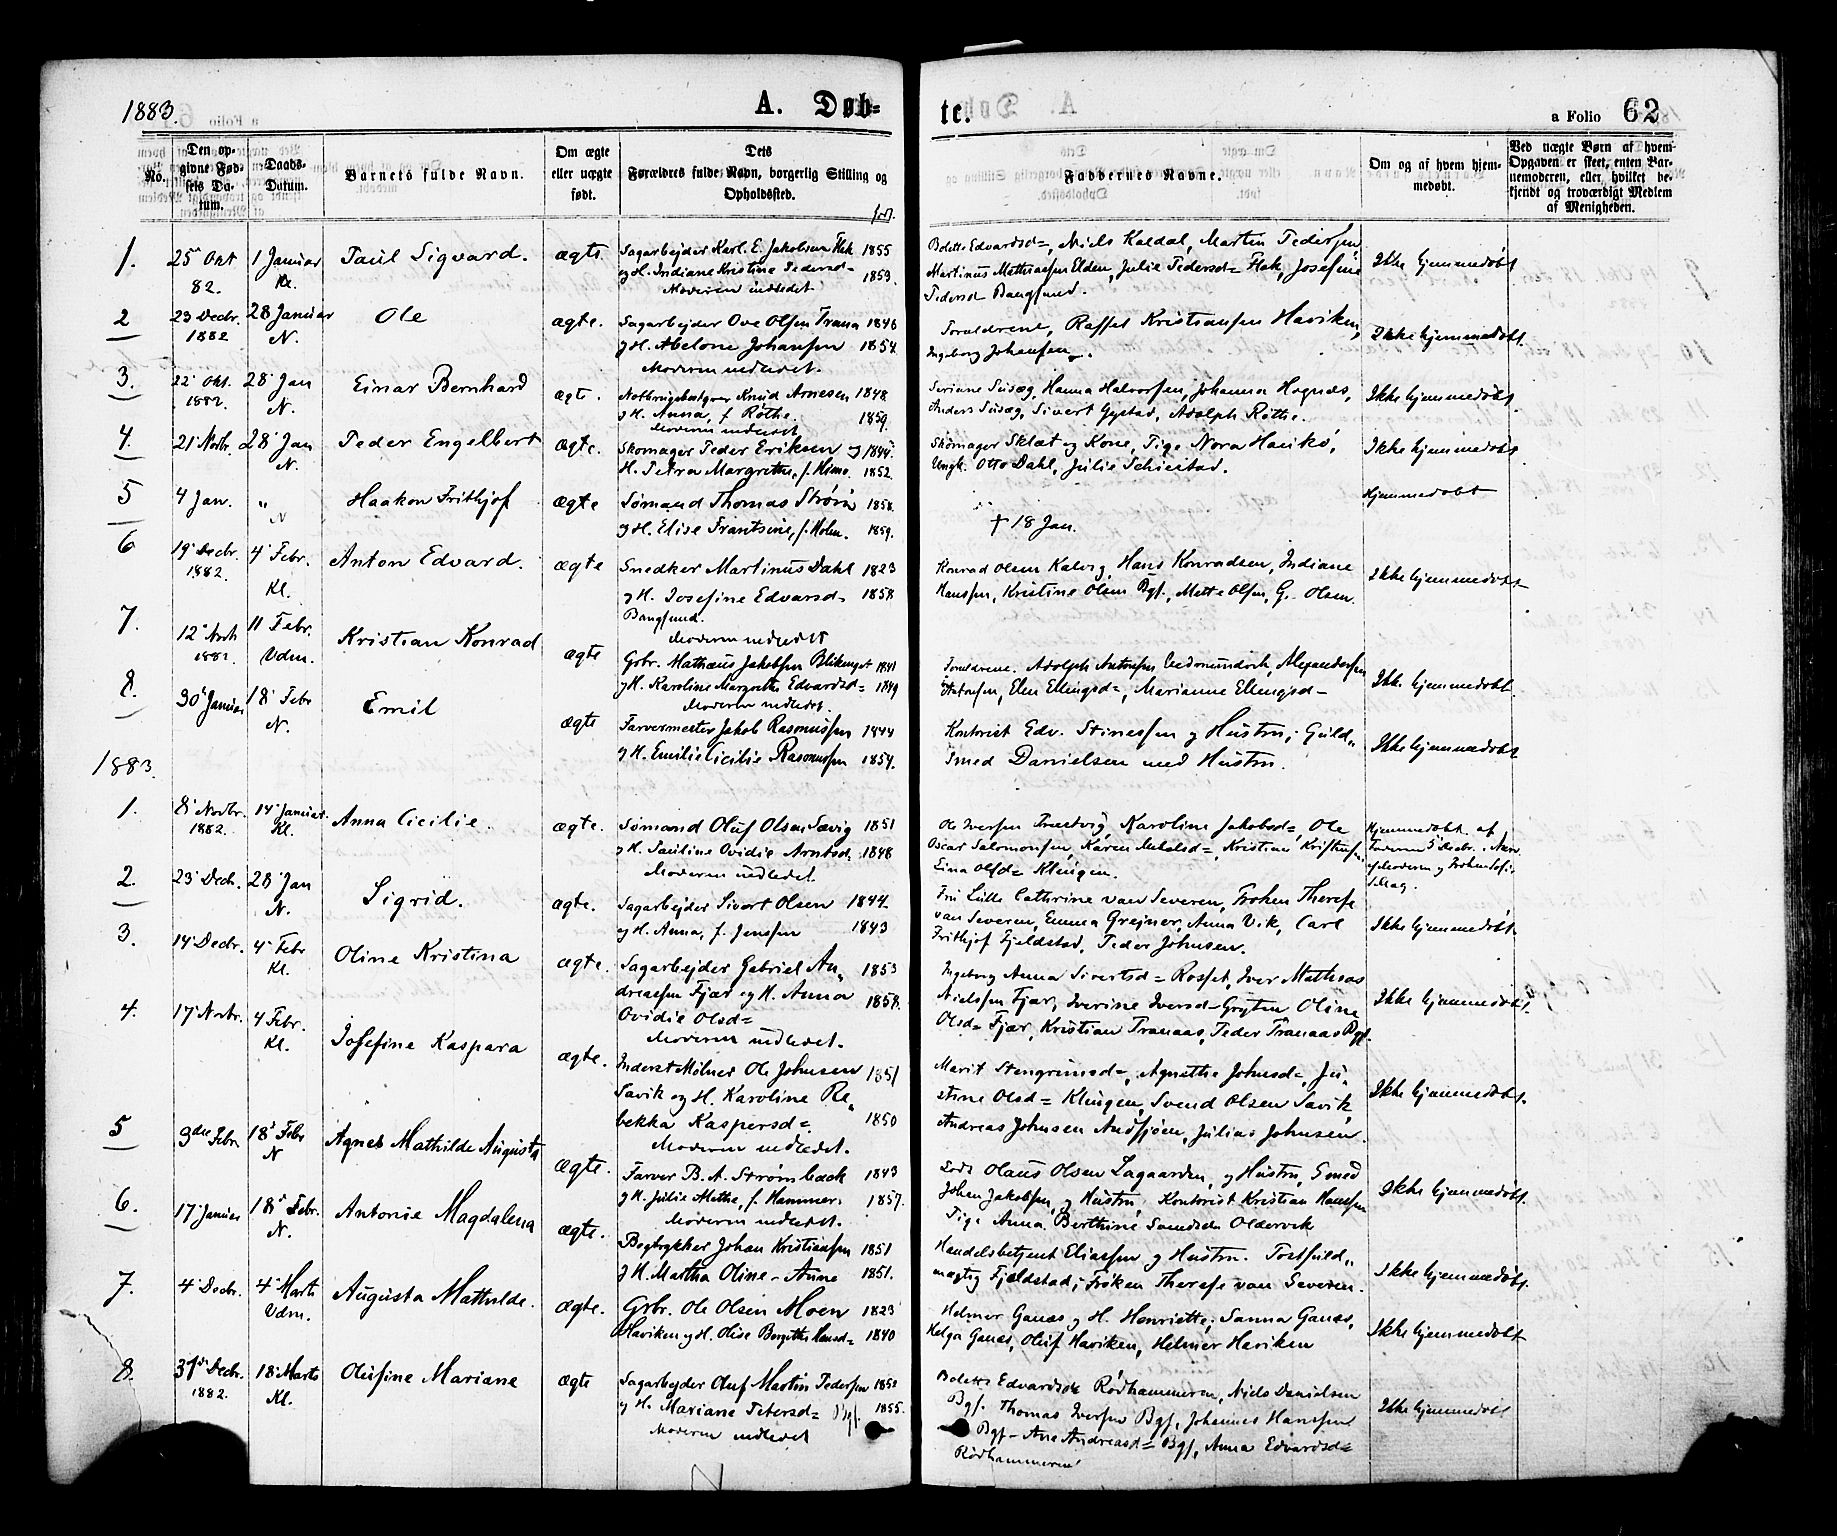 1883.
A. Døb-
te.
a Folio 62
No.
Den op-
givne Fød-
sels Da-
tum.
Daabs-
Datum.
Barnets fulde Navn.
Om ægte
eller uægte
født.
Dets
Forældres fulde Navn, borgerlig Stilling og
Opholdssted.
Faddernes Navne.
Om og af hvem hjem-
medøbt.
Ved uægte Børn af hvem
Opgaven er skeet, enten Bar-
nemoderen, eller hvilket be-
kjendt og troværdigt Medlem
af Menigheden.
1. 25 Okt 1 Januar Paul Sigvard. ægte Sagarbejder Karl E. Jakobsen Flak 1855
82. Kl. og H. Indiane Kristine Pedersd= 1859.
Moderen indledet
Bolette Edvardsd=, Niels Kaldal, Martin Pedersen,
Martinus Mathiassen Elden, Julie Pedersd= Flak, Josefine
Pedersd= Bangsund.
Ikke hjemmedøbt
2 23 Decbr. 28 Januar Ole ægte. Sagarbejder Ove Olsen Trana 1846
1882 N. og H. Abelone Johansen 1854.
Moderen indledet.
Forældrene, Kristiansen Haviken,
Ingeborg Johansen.
Ikke hjemmedøbt.
3. 22 Okt. 28 Jan Einar Bernhard ægte. Knud Arnesen 1848
1882. N. og H. Anna, f. Røthe. 1859.
Moderen indledet
Hanna Halvorsen, Johanna Hognæs,
Anders Sivert Gystad, Adolph Røthe.
Ikke hjemmedøbt.
4. 21 Novbr. 28 Jan Peder Engelbert ægte. Skomager Peder Eriksen og 1844.
N. H. Petra Margrethe, f. Himo 1852.
Skomager Sklæt og Kone, Pige Nora
Ungk. Otto Dahl, Julie
Ikke hjemmedøbt
5 4 Jan. " Haakon Frithjof ægte Sømand Thomas Strøm 1858.
N og H. Elise Frantsine, f. Holm. 1859.
† 18 Jan.
Hjemmedøbt
6 19 Decbr. 4 Febr. Anton Edvard. ægte Snedker Martinus Dahl 1823
1882. Kl. og H. Josefine Edvardsd= 1858
Bangsund.
Moderen indledet
Konrad Olsen Kalvig, Hans Konradsen, Indiane
Hanssen, Kristine Olsen Bgs., Mette Olsen, G. Olsen.
Ikke hjemmedøbt
7. 12 Novb 11 Febr. Kristian Konrad ægte Grbr. Mathæus Jakobsen 1841
1882. Vdm. og H. Karoline Margrethe Edvardsd= 1849
Moderen indledet.
Forældrene. Adolph Antonsen
Antonsen, Elen Ellingsd=, Marianne Ellingsd=
Ikke hjemmedøbt.
8. 30 Januar 18 Febr Emil ægte Farvermester Jakob Rasmussen 1844
N. og H. Emilie Cicilie Rasmussen 1854.
Kontorist Edv. Stinessen og Hustru; Guld-
smed Danielsen med Hustru.
Ikke hjemmedøbt
1883.
1. 8 Novbr. 14 Januar. Anna Cicilie. ægte. Sømand Oluf Olsen Sævig 1851
1882. Kl. og H. Pauline Ovidie Arntsd. 1848
Moderen indledet.
Ole Iversen Karoline Jakobsd=, Ole
Oscar Salomonsen, Karen Kristian
Lina Olsd= Klingen.
Hjemmedøbt af
2. 23 Decb. 28 Jan Sigrid. ægte. Sagarbejder Sivert Olsen 1844.
N. og H. Anna, f. Jenssen 1843
Fru Lulle Cathrine van Severen, Frøken Therese
van Severen, Emma Grejner, Anna Vik, Carl
Frithjof Fjeldstad, Peder Johnsen.
Ikke hjemmedøbt.
3. 14 Decbr. 4 Febr Oline Kristina ægte. Sagarbejder Gabriel An- 1853
Kl. dreassen Fjær og H. Anna 1858.
Ovidie Olsd=
Moderen indledet.
Ingeborg Anna Sivertsd= Rosset, Iver Mathias
Nielssen Fjær, Iverine Iversd= Gryten Oline
Olsd= Fjær, Kristian Tranaas, Peder Tranaas Bgs.
Ikke hjemmedøbt.
4. 17 Novbr. 4 Febr. Josefine Kaspara ægte. Inderst Møllner Ole Johnsen 1851
Kl. Savik og H. Karoline Re-
bekka Kaspersd= 1850
Moderen indledet.
Marit Stengrimsd=, Agnethe Johnsd=, Ju-
stine Olsd= Klingen, Svend Olsen Savik,
Andreas Johnsen Julius Johnsen.
Ikke hjemmedøbt.
5 3die Febr 18 Febr Agnes Mathilde Augusta ægte. Farver B. A. Strømback 1843
N og H. Julie Mathe, f. Hammer. 1857.
Moderen indledet.
Lods Olaus Olsen Lagaarden, og Hustru, Smed
Johan Jakobsen, og Hustru; Kontorist Kristian Hanssen
Pige Anna Berthine Svendsen Oldervik
Ikke hjemmedøbt.
6. 17 Januar 18 Febr. Antonie Magdalena ægte. Bogtrykker Johan Kristiansen 1851
N. og H. Martha Oline Anne 1851.
Handelsbetjent Eliassen og Hustru. Postfuld-
mægtig Fjeldstad; Frøken Therese van Severen.
Ikke hjemmedøbt.
7. 4 Decbr. 4 Marts Augusta Mathilde. ægte. Grbr. Ole Olsen Moen 1823
Vdm. Haviken og H. Olise Birgitte Hansd= 1840
Helmer Ganæs og H. Henriette; Sanna Ganæs,
Helga Ganæs, Oluf Haviken, Helmer Haviken
Ikke hjemmedøbt
8. 31 Decbr. 18 Marts Olufine Mariane ægte Sagarbejder Oluf Martin Pedersen 1850
1882. Kl. og H. Mariane Petersd= Bgs. 1855.
Moderen indledet
Bolette Edvardsd= Rødhammeren, Niels Danielsen
Bgs. Thomas Iversen Bgs, Johannes Hanssen
Bgs= Ane Andreasd= Bgs, Anna Edvardsd=
Rødhammeren
Ikke hjemmedøbt